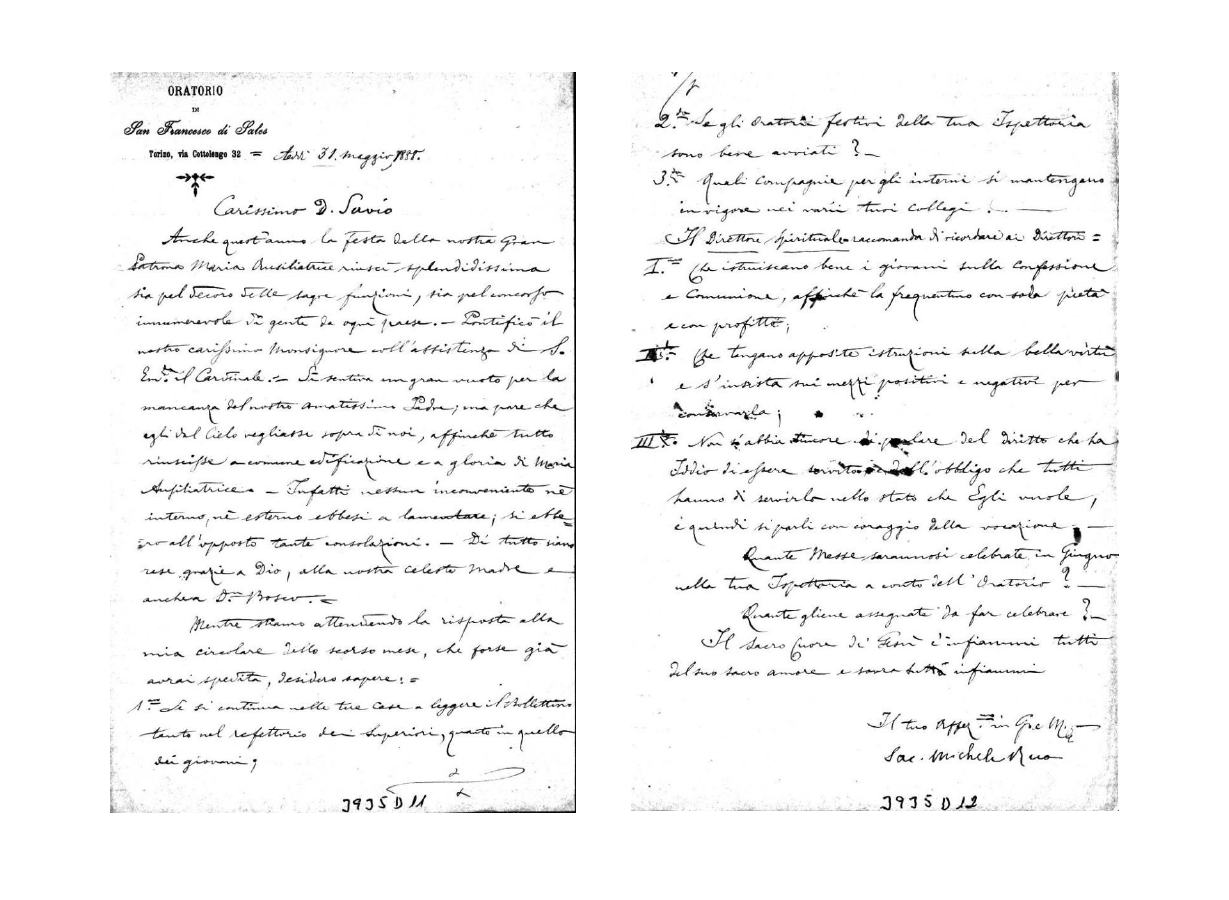 ORATORIO
DI
San Francesco di Sales
Torino, via Cottolengo 32 = Addì 31. Maggio
Carissimo D. Savio
Anche quest'anno la festa della nostra Gran
Patrona Maria Ausiliatrice riuscì splendidissima
sia pel decoro delle sagre funzioni, sia pel concorso
innumerevole di gente da ogni paese. — Pontificò il
nostro carissimo Monsignore coll'assistenza di S.
Em.za il Cardinale. — Si sentiva un gran vuoto per la
mancanza del nostro amatissimo Padre; ma pare che
egli dal Cielo vegliasse sopra di noi, affinchè tutto
riuscisse a comune edificazione e a gloria di Maria
Ausiliatrice. — Infatti nessun inconveniente nè
interno, nè esterno ebbesi a lamentare; si ebbe=
ro all'opposto tante consolazioni. — Di tutto siano
rese grazie a Dio, alla nostra celeste Madre e
anche a D.n Bosco. =
Mentre stiamo attendendo la risposta alla
mia circolare dello scorso mese, che forse già
avrai spedita, desidero sapere: =
1.° Se si continua nelle tue case a leggere il Bollettino
tanto nel refettorio dei Superiori, quanto in quello
dei giovani;
J9J5 D 11
2.° Se gli Oratorii festivi della tua Ispettoria
sono bene avviati? —
3.° Quali Compagnie per gli interni si mantengano
in vigore nei varii tuoi collegi. —
Il Direttore Spirituale raccomanda di ricordare ai Direttori =
I.° Che istruiscano bene i giovani sulla Confessione
e Comunione, affinchè la frequentino con soda pietà
e con profitto;
II.° Che tengano apposite istruzioni sulla bella virtù
e s'insista sui mezzi positivi e negativi per
conservarla;
III.° Non s'abbia timore di parlare del diritto che ha
Iddio di essere servito e dell'obbligo che tutti
hanno di servirlo nello stato che Egli vuole,
e quindi si parli con coraggio della vocazione. —
Quante Messe sarannosi celebrate in Giugno
nella tua Ispettoria a conto dell'Oratorio? —
Quante gliene assegnate da far celebrare? —
Il Sacro Cuore di Gesù c'infiammi tutti
del suo sacro amore e
Il tuo Aff. in G. e M.a
Sac. Michele Rua
J9J5 D 12